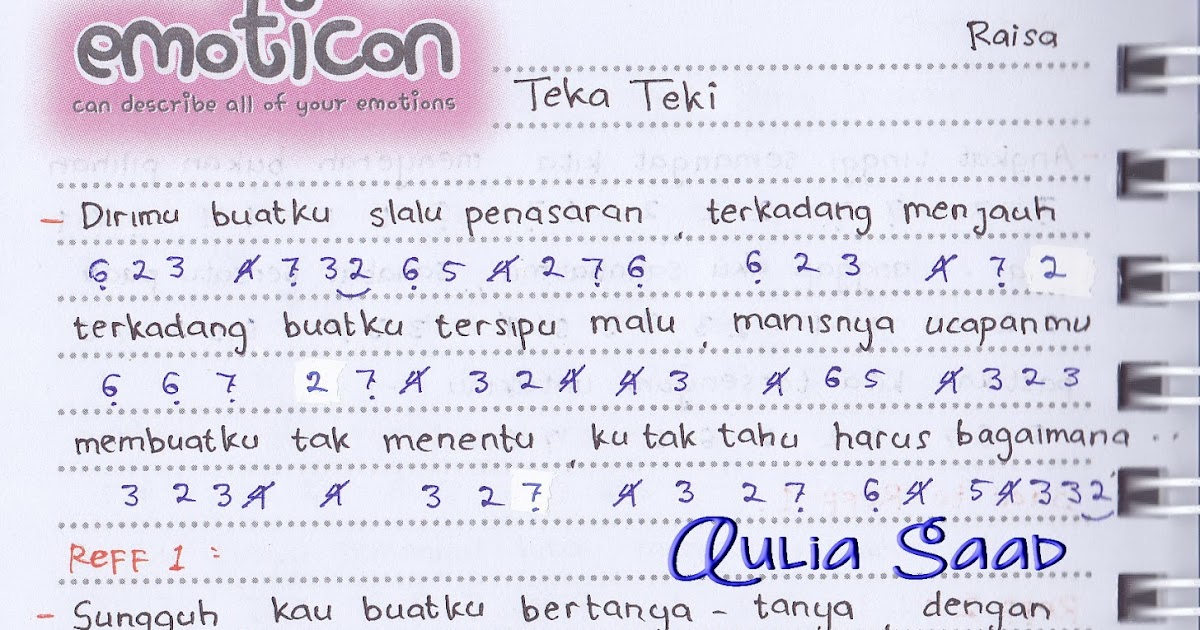 emoticon
can describe all of your emotions
Raisa
Teka Teki
- Dirimu buatku slalu penasaran, terkadang menjauh
6 2 3 4 7 32 6 5 4 2 7 6 6 2 3 4 7 2
terkadang buatku tersipu malu, manisnya ucapanmu
6 6 7 2 7 4 3 2 4 4 3 4 6 5 4 3 2 3
membuatku tak menentu, ku tak tahu harus bagaimana ..
3 2 3 4 4 3 2 7 4 3 2 7 6 4 5 4 3 3 2
Reff 1 :
Qulia Saad
- Sungguh kau buatku bertanya - tanya dengan